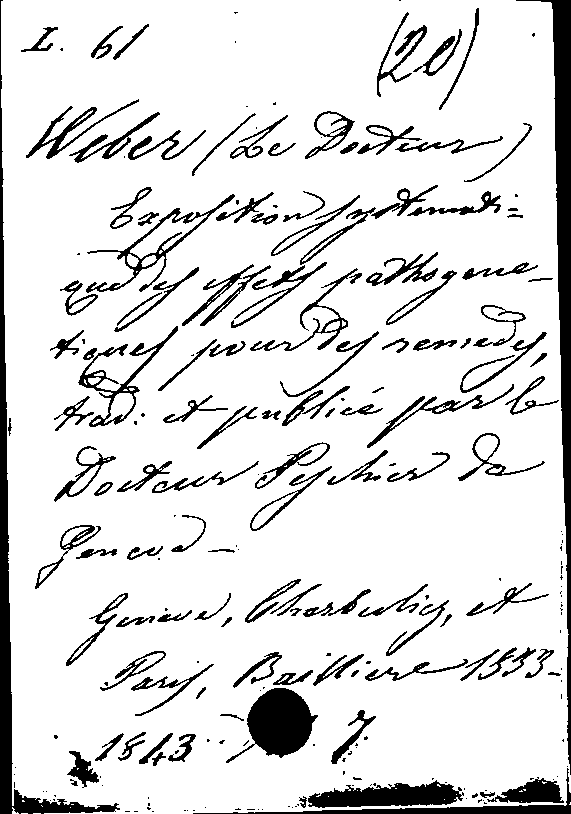 L. 61 (20)
Weber (Le Docteur)
Exposition systemati=
que des effets pathogene-
tiques pour des remedes,
trad: et publié par le
Docteur Peschier de
Geneve -
Geneve, Charbuliez, et
Paris, Bailliere 1833-
1843 7